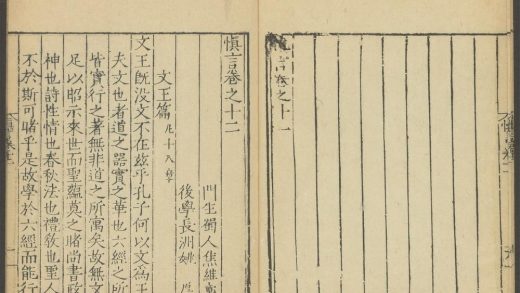 慎言卷之十一
慎言卷之十二
門生蜀人焦維
後學長洲姚
文王篇 凡十八章
文王既没文不在兹乎孔子何以文為王
夫文也者道之器實之華也六經之所
皆實行之著無非道之所寓矣故無文
足以昭示來世而聖蘊莫之睹尚書政
神也詩性情也春秋法也禮教也聖人
不於斯可睹乎是故學於六經而能行